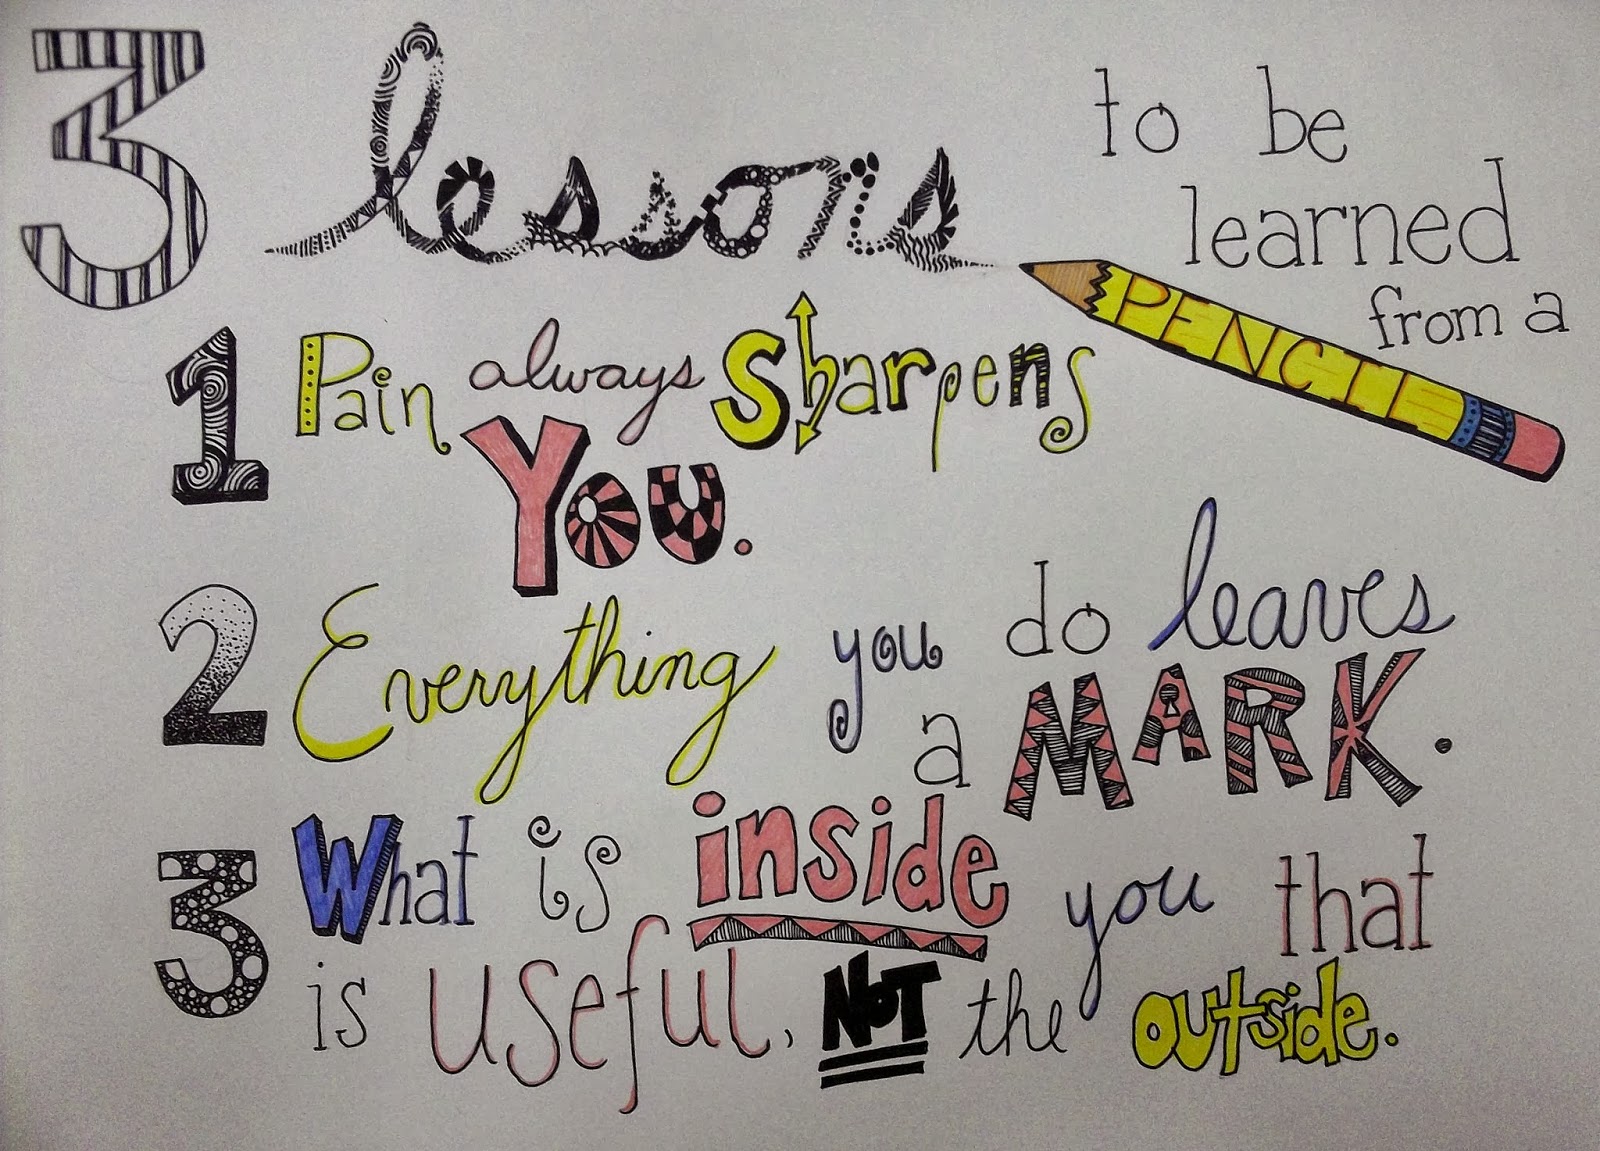 3 lessons to be
learned
from a
PENCIL
1 Pain always Sharpens
You.
2 Everything you do leaves
a MARK.
3 What is inside you that
is useful, NOT the outside.